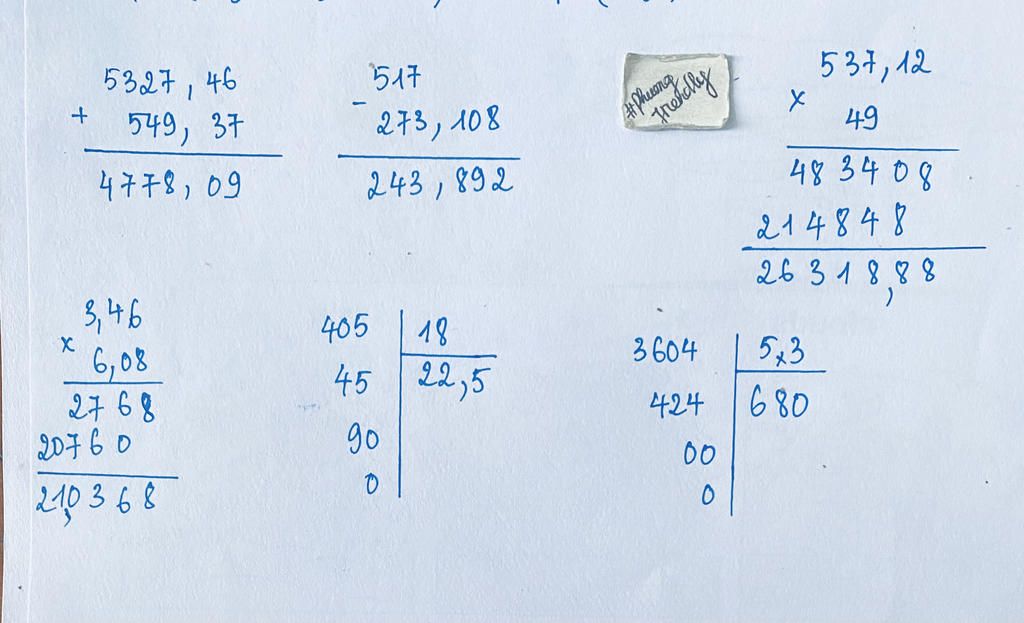 5327,46
+ 549,37
4778,09
517
- 273,108
243,892
#Phuong
friendly
537,12
x
49
483408
214848
26318,88
3,46
x 6,08
2768
20760
21,0368
405 18
45 22,5
90
0
3604 5,3
424 680
00
0